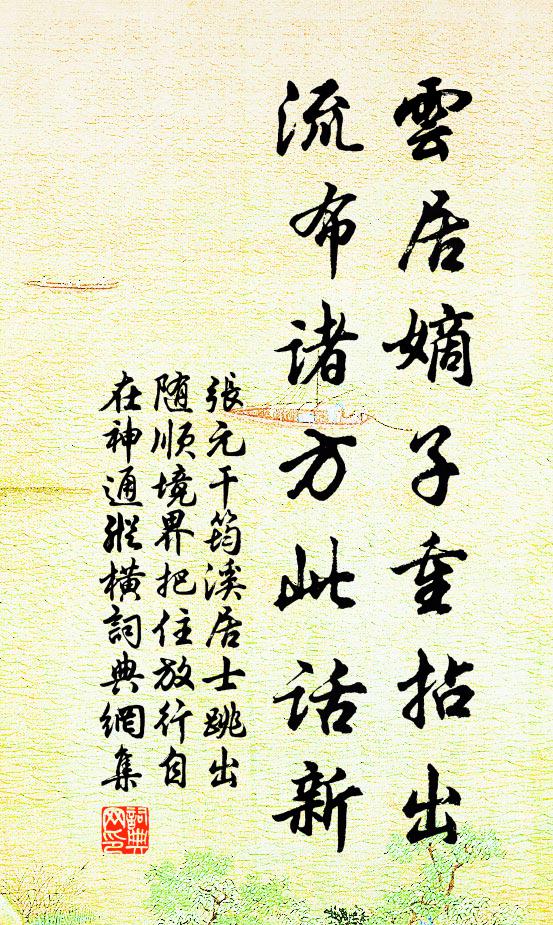 雲居嫡子重拈出
流布诸方此话新
張元干筠溪居士跳出
随顺境界把住放行自
在神通縱橫詞典網集
詞典网印